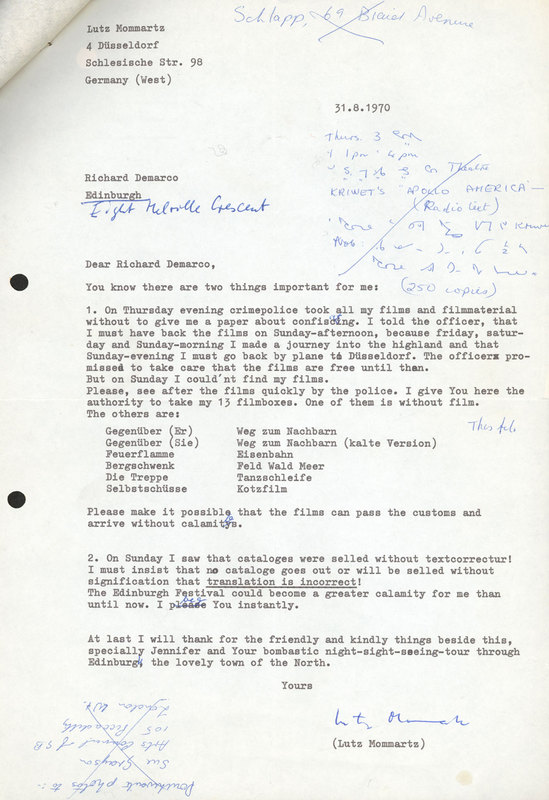 Schlapp, 69 Avenue
Lutz Mommartz
4 Düsseldorf
Schlesische Str. 98
Germany (West)
31.8.1970
Thurs. 3
1 pm 4 pm
Theatre
KRIWET'S "APOLLO AMERICA" —
(Radio text)
(250 copies)
Richard Demarco
Edinburgh
Eight Melville Crescent
Dear Richard Demarco,
You know there are two things important for me:
1. On Thursday evening crimepolice took all my films and filmmaterial
without to give me a paper about confiscing. I told the officer, that
I must have back the films on Sunday-afternoon, because friday, satur-
day and Sunday-morning I made a journey into the highland and that
Sunday-evening I must go back by plane to Düsseldorf. The officer pro-
missed to take care that the films are free until than.
But on Sunday I could'nt find my films.
Please, see after the films quickly by the police. I give You here the
authority to take my 13 filmboxes. One of them is without film.
The others are:
Gegenüber (Er) Weg zum Nachbarn
Gegenüber (Sie) Weg zum Nachbarn (kalte Version)
Feuerflamme Eisenbahn
Bergschwenk Feld Wald Meer
Die Treppe Tanzschleife
Selbstschüsse Kotzfilm
Please make it possible that the films can pass the customs and
arrive without calamitys.
2. On Sunday I saw that cataloges were selled without textcorrectur!
I must insist that no cataloge goes out or will be selled without
signification that translation is incorrect!
The Edinburgh Festival could become a greater calamity for me than
until now. I beg You instantly.
At last I will thank for the friendly and kindly things beside this,
specially Jennifer and Your bombastic night-sight-seeing-tour through
Edinburgh, the lovely town of the North.
Yours
(Lutz Mommartz)
photos to :-
Sue Grayson
Arts Council of GB
105 Piccadilly
London W1.